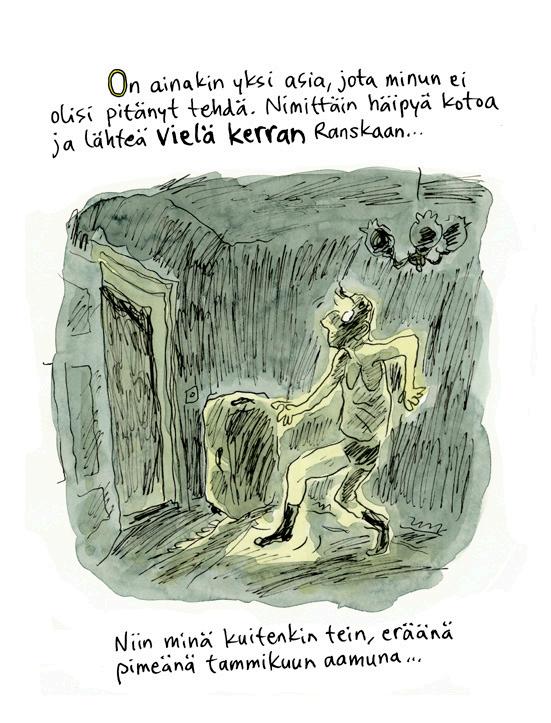 On ainakin yksi asia, jota minun ei
olisi pitänyt tehdä. Nimittäin häipyä kotoa
ja lähteä vielä kerran Ranskaan...
Niin minä kuitenkin tein, eräänä
pimeänä tammikuun aamuna...